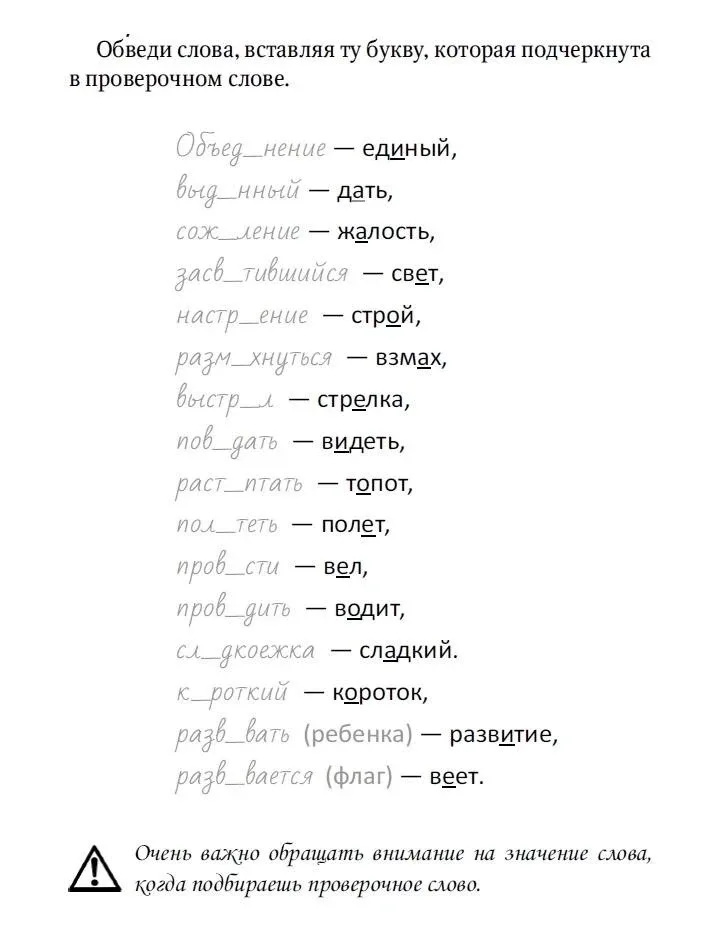 Обведи слова, вставляя ту букву, которая подчеркнута
в проверочном слове.
Объед_нение — единый,
выд_нный — дать,
сож_ление — жалость,
засв_тившийся — свет,
настр_ение — строй,
разм_хнуться — взмах,
выстр_л — стрелка,
пов_дать — видеть,
раст_птать — топот,
пол_теть — полет,
пров_сти — вел,
пров_дить — водит,
сл_дкоежка — сладкий.
к_роткий — короток,
разв_вать (ребенка) — развитие,
разв_вается (флаг) — веет.
Очень важно обращать внимание на значение слова,
когда подбираешь проверочное слово.